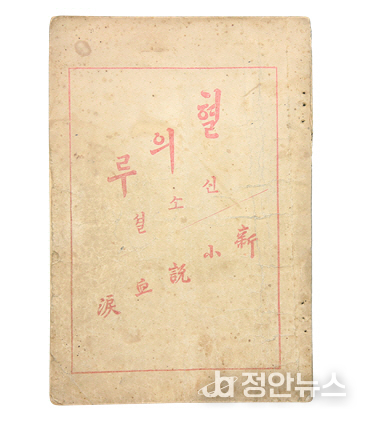 혈의루
신소설
新小說血淚
정안뉴스